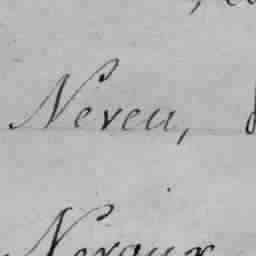 Neveu,
Neveux